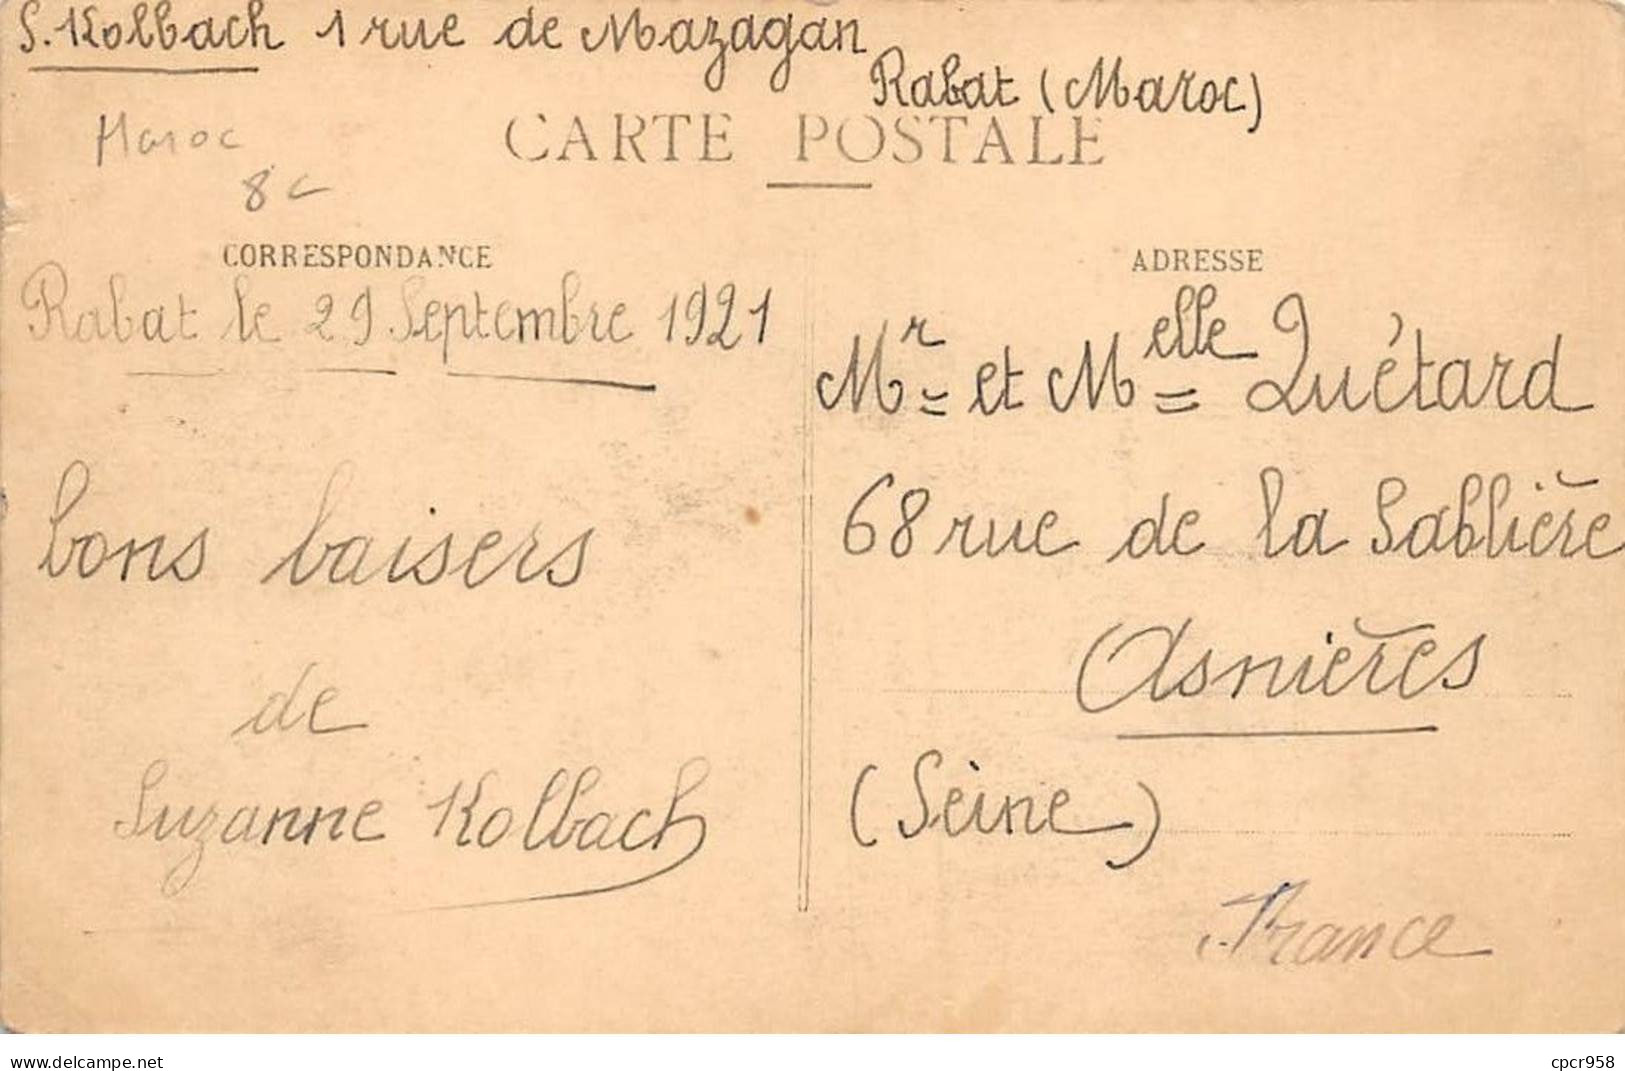 S. Kolbach 1 rue de Mazagan
Rabat (Maroc)
Maroc
8
CARTE POSTALE
CORRESPONDANCE
Rabat le 29 Septembre 1921
bons baisers
de
Suzanne Kolbach
ADRESSE
Mr et Melle Quétard
68 rue de la Sablière
Asnières
(Seine)
France
www.delcampe.net
cpcr958